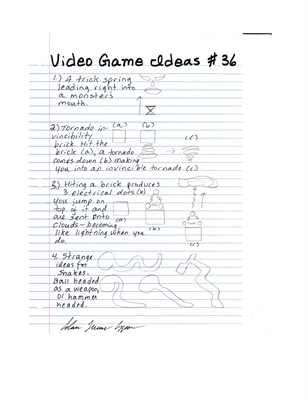 Video Game Ideas # 36
1.) A trick spring
leading right into
a monsters
mouth.
2) Tornado in- (a) (b)
vincibility
brick. Hit the (c)
brick (a), a tornado
comes down (b) making
you into an invincible tornado (c)
3) Hitting a brick produces
3 electrical dots (a)
You jump on
top of it and
are sent onto (a)
clouds - becoming (b) (c)
like lightning when you
do.
4. Strange
ideas for
snakes.
Ball headed
as a weapon,
or hammer
headed.